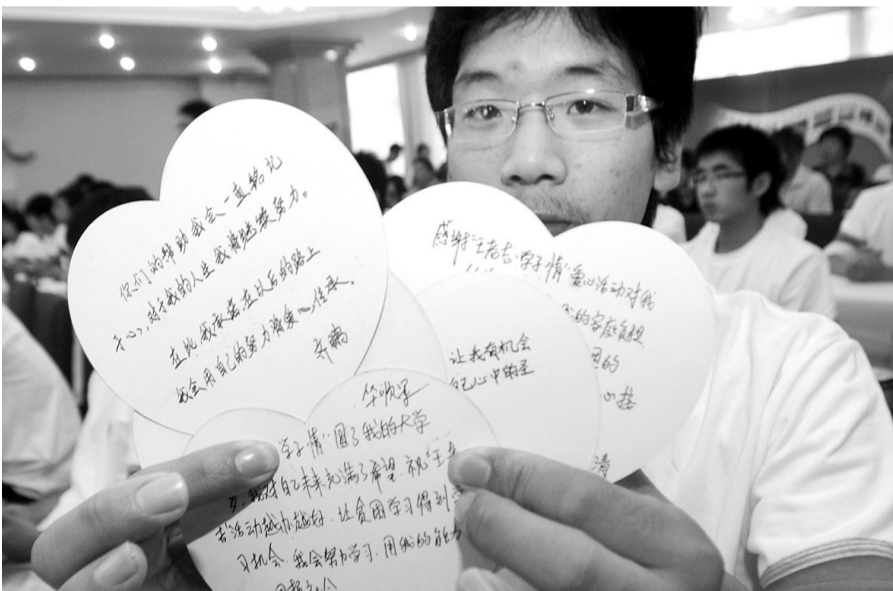 你们的帮助我会一直铭记
于心,对于我的人生我将继续努力。
在此,我承诺在以后的路上
我会用自己的努力将爱心传承。
感谢“王老吉·学子情”爱心活动对我
的家庭负担
困的
心括
让我有机会
自己心中的圣
清
学子情”圆了我的大学
梦,我对自己未来充满了希望.祝“王老
吉”活动越办越好.让贫困学习得到学
习机会.我会努力学习.用我的能力
回报社会